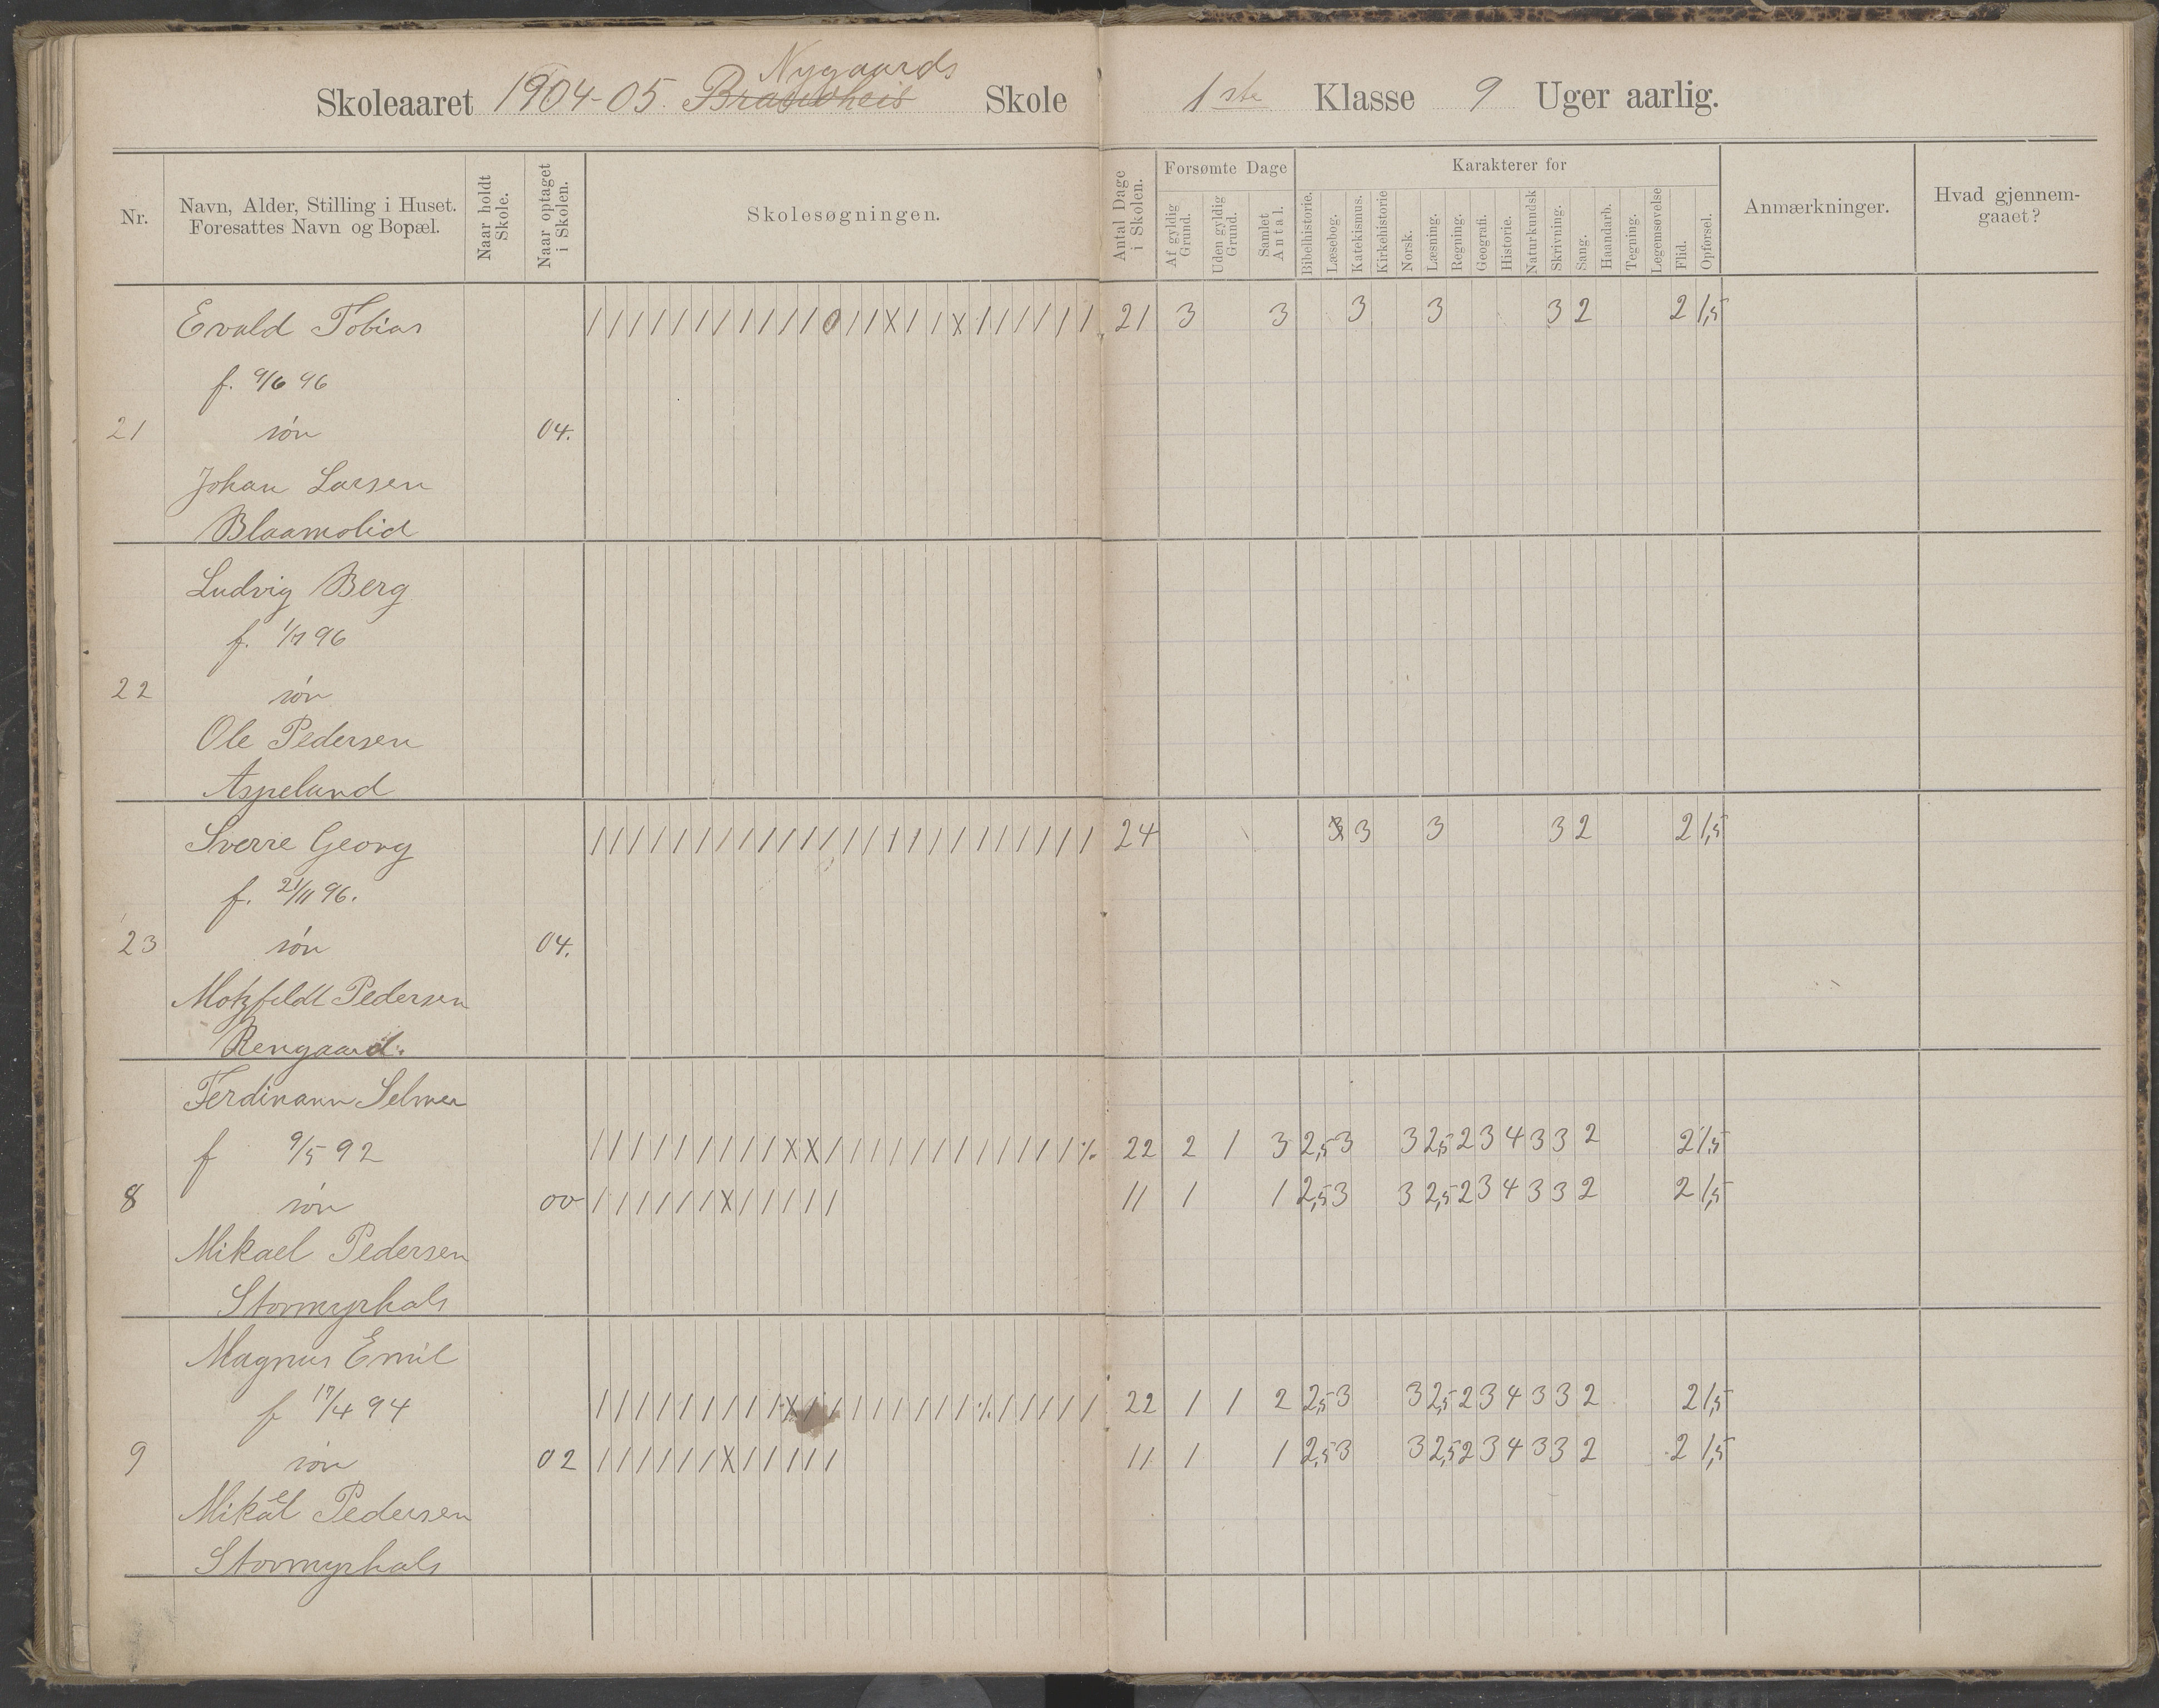 Nygaards
Skoleaaret 1904-05. Skole 1ste Klasse 9 Uger aarlig.
Nr. Navn, Alder, Stilling i Huset. Foresattes Navn og Bopæl. Naar holdt Skole. Naar optaget i Skolen. Skolesøgningen. Antal Dage i Skolen. Forsømte Dage Af gyldig Grund. Uden gyldig Grund. Samlet Antal. Karakterer for Bibelhistorie. Læsebog. Katekismus. Kirkehistorie Norsk. Læsning. Regning. Geografi. Historie. Naturkundsk Skrivning. Sang. Haandarb. Tegning. Legemsøvelse Flid. Opførsel. Anmærkninger. Hvad gjennemgaaet?
Evald Tobias / / / / / / / / / / / 0 / / x / / x / / / / / / 21 3 3 3 3 3 2 2 1,5
f. 9/6 96
21 søn 04.
Johan Larsen
Blaamolid
Ludvig Berg
f. 1/7 96
22 søn
Ole Pedersen
Aspelund
Sverre Georg / / / / / / / / / / / / / / / / / / / / / / / / 24 3 3 3 2 2 1,5
f. 21/11 96.
23 søn 04.
Motzfeldt Pedersen
Rengaard.
Ferdinann Selmer
f 9/5 92 / / / / / / / / / x x / / / / / / / / / / / / % 22 2 1 3 2,5 3 3 2,5 2 3 4 3 3 2 2 1,5
8 søn 00 / / / / / / x / / / / / 11 1 1 2,5 3 3 2,5 2 3 4 3 3 2 2 1,5
Mikael Pedersen
Stormyrhals
Magnus Emil
f 17/4 94 / / / / / / / / / x / / / / / / / / % / / / / / 22 1 1 2 2,5 3 3 2,5 2 3 4 3 3 2 2 1,5
9 søn 02 / / / / / / x / / / / / 11 1 1 2,5 3 3 2,5 2 3 4 3 3 2 2 1,5
Mikael Pedersen
Stormyrhals